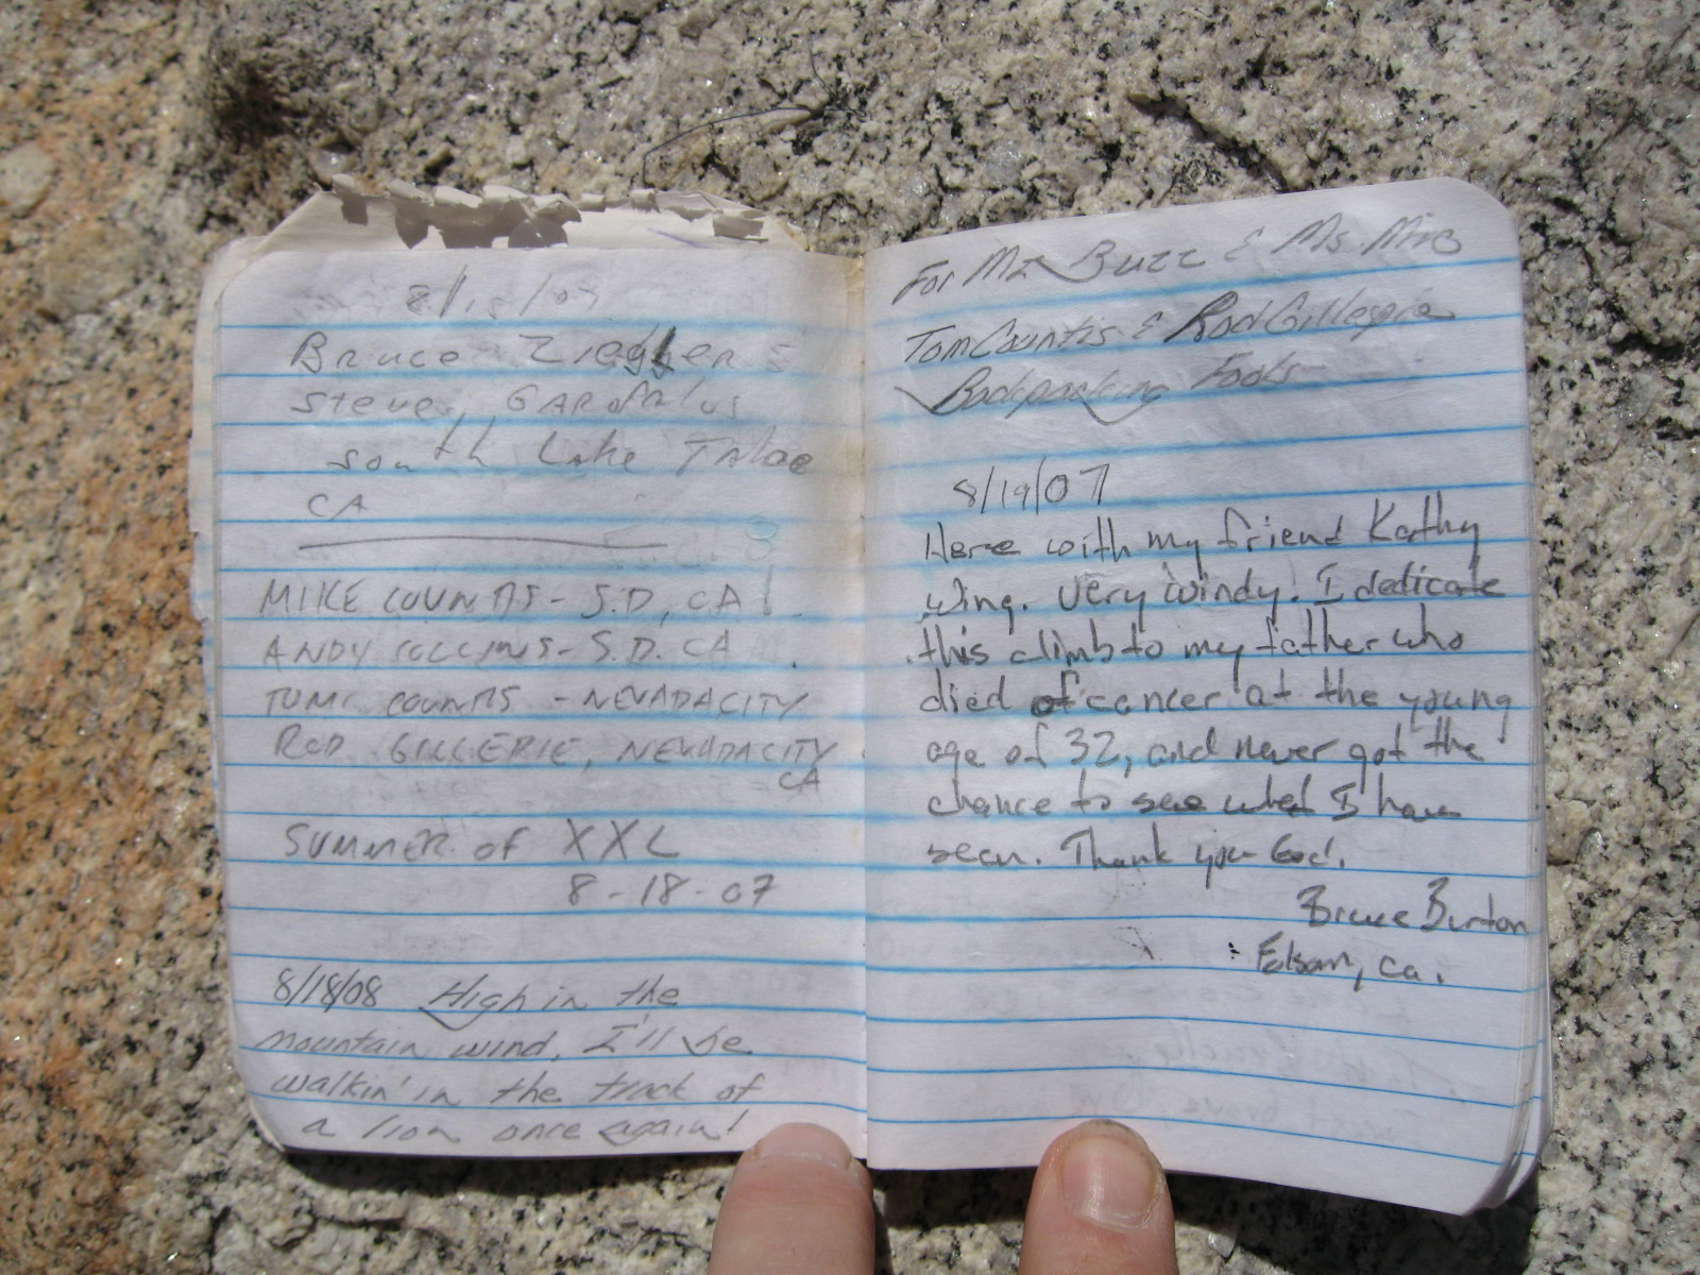 8/15/07
Bruce Ziegler &
Steve Garofalus
South Lake Tahoe
CA
MIKE COUNTS - S.D, CA
ANDY COLLINS - S.D. CA
TOM COUNTS - NEVADA CITY
ROD GILLERIE, NEVADA CITY
CA
SUMMER of XXL
8-18-07
8/18/08 High in the
mountain wind. I'll be
walkin' in the track of
a lion once again!
For Mr Buzz & Ms.
Tom Counts & Rod Gillespie
Backpacking Fools
8/19/07
Here with my friend Kathy
Wing. Very windy. I dedicate
this climb to my father who
died of cancer at the young
age of 32, and never got the
chance to see what I have
seen. Thank you God.
Bruce Burton
Folsom, ca.